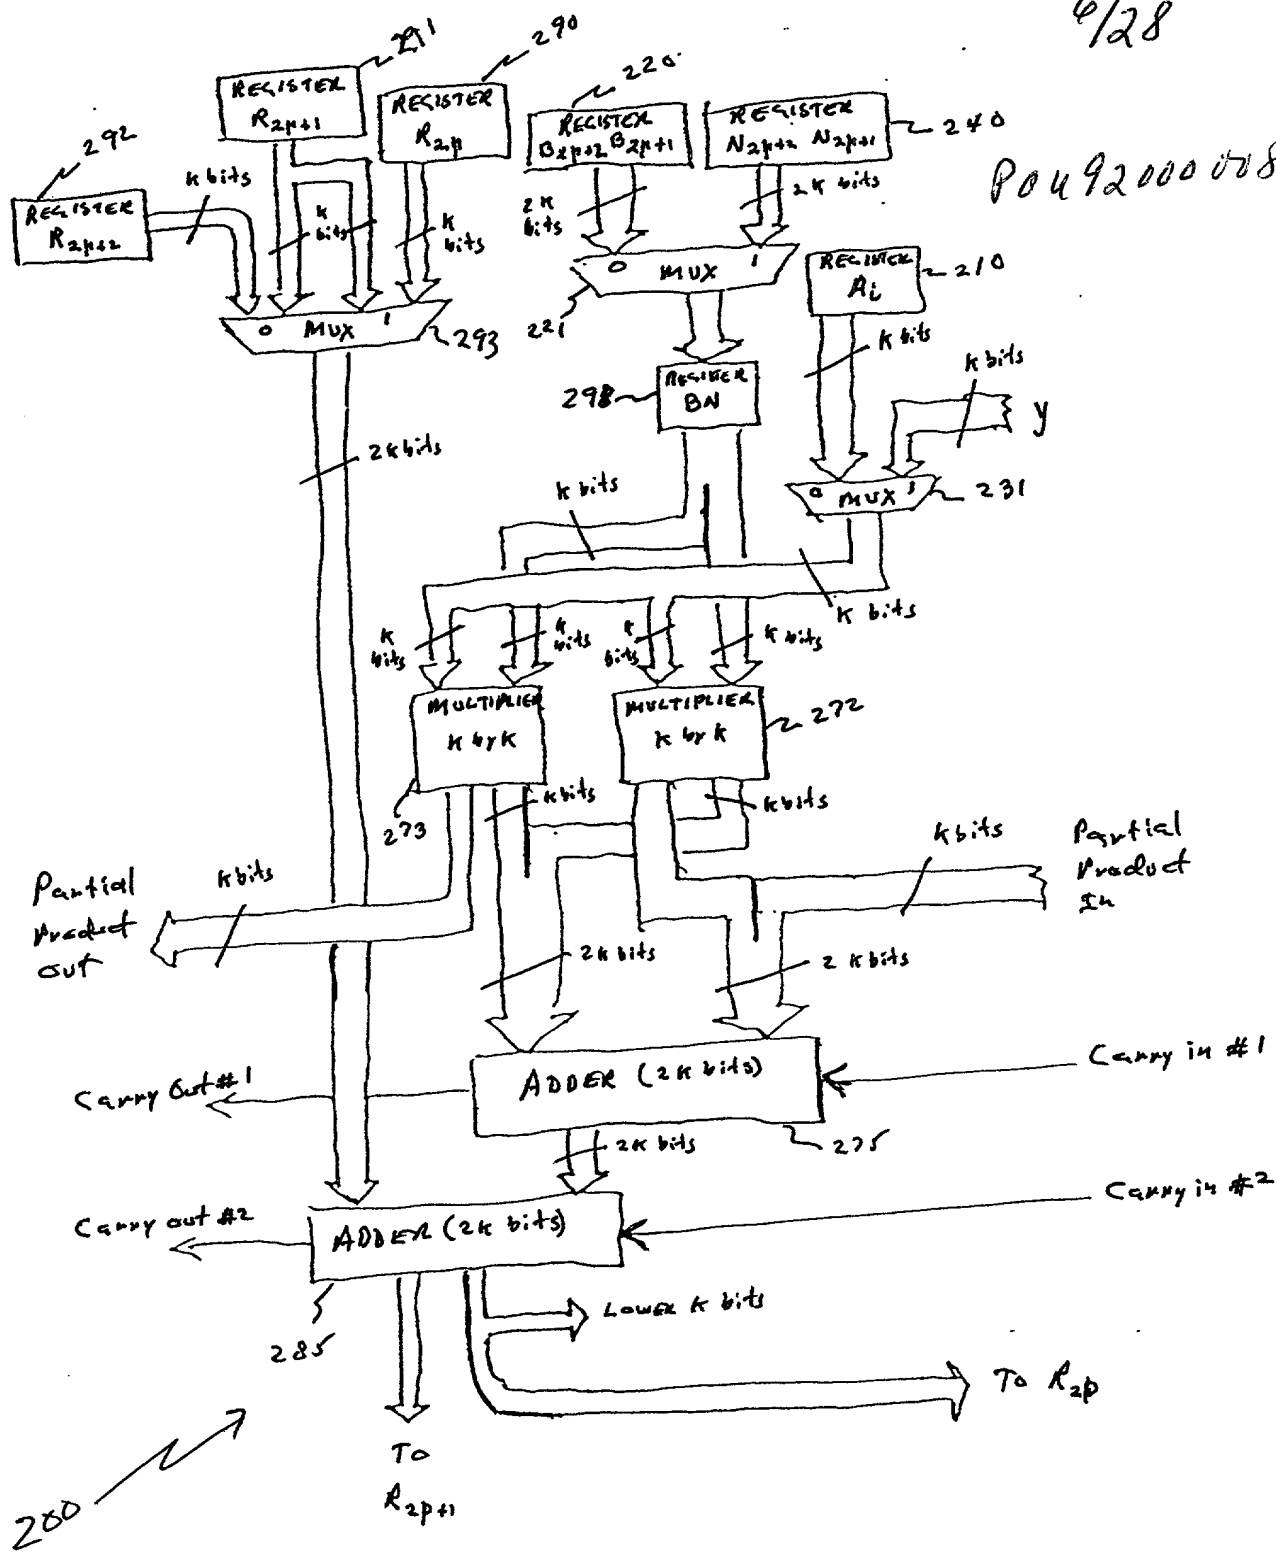 6/28
POU92000008
291
REGISTER
R2p+1
290
REGISTER
R2p
220
REGISTER
B2p+2 B2p+1
REGISTER
N2p+2 N2p+1
240
292
REGISTER
R2p+2
k bits
k bits
k bits
2k bits
2k bits
0 MUX 1
293
0 MUX 1
221
REGISTER
Ai
210
k bits
k bits
y
REGISTER
BN
298
0 MUX 1
231
2k bits
k bits
k bits
k bits
k bits
k bits
k bits
MULTIPLIER
k by k
273
MULTIPLIER
k by k
272
k bits
k bits
k bits
Partial
Product
In
Partial
Product
out
k bits
2k bits
2 k bits
Carry in #1
ADDER (2k bits)
Carry Out #1
275
2k bits
Carry in #2
Carry out #2
ADDER (2k bits)
285
LOWER k bits
To R2p
To
R2p+1
200